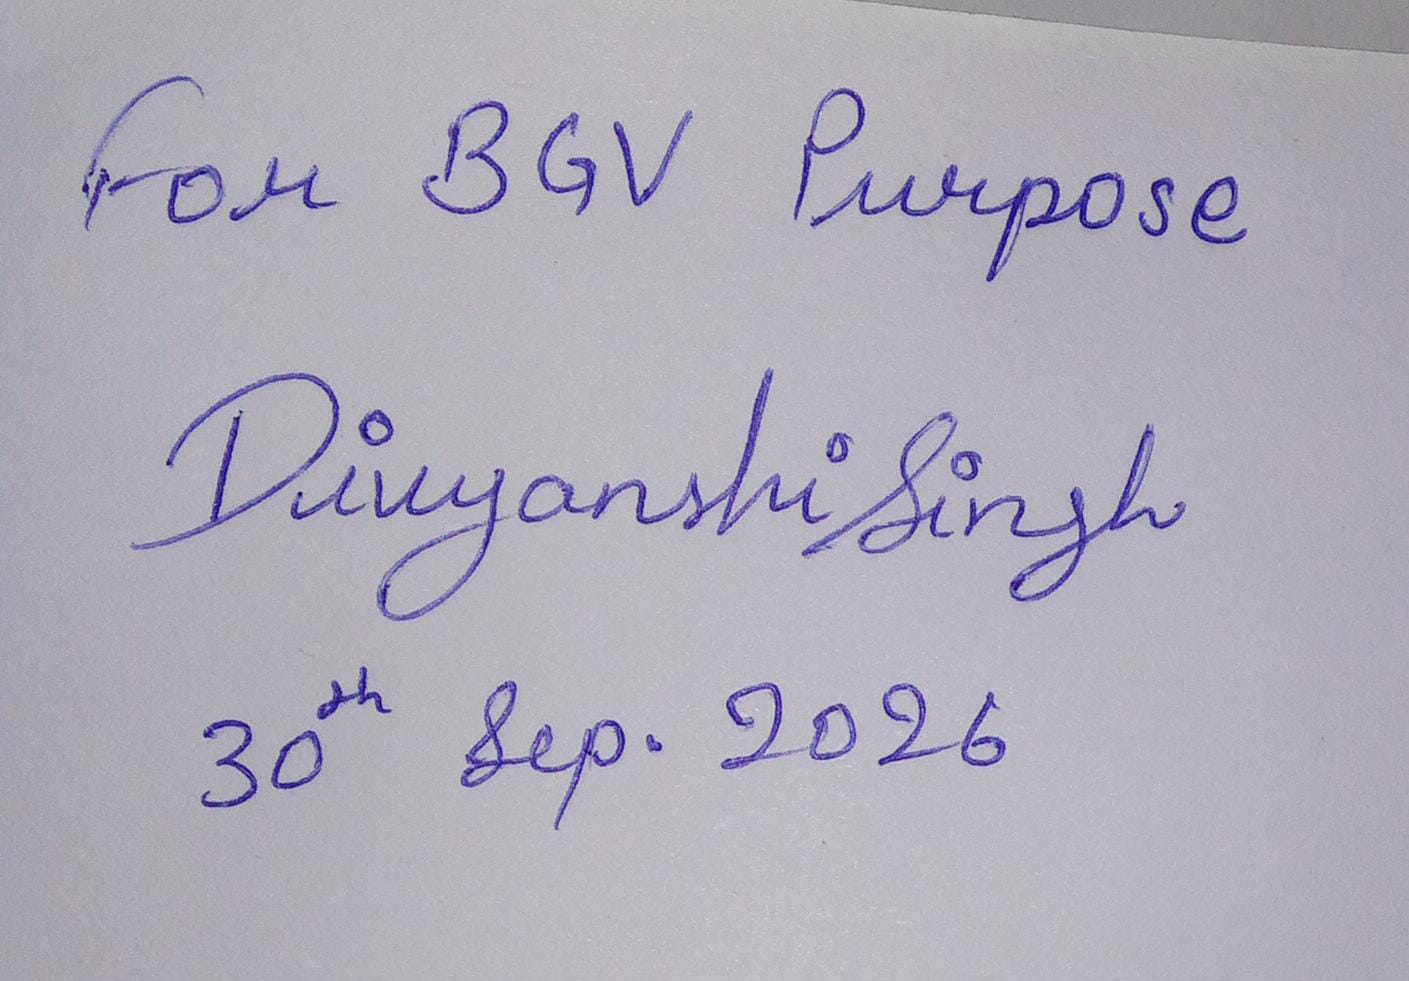 For BGV Purpose
Divyanshi Singh
30th Sep. 2026